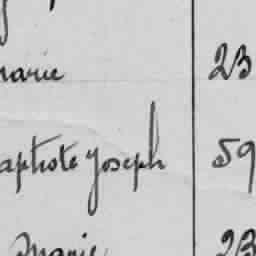 marie 23
aptiste Joseph 59
Marie 23